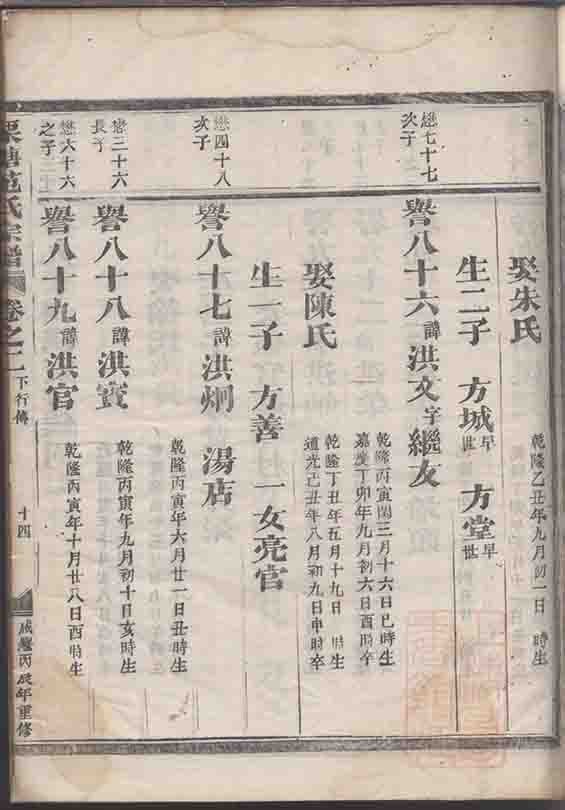 娶朱氏
乾隆乙丑年九月初一日 時生
生二子 方城早世 方堂早世
懋七十七
次子
譽八十六諱洪文字繼友
乾隆丙寅閏三月十六日巳時生
嘉慶丁卯年九月初六日酉時卒
娶陳氏
乾隆丁丑年五月十九日 時生
道光己丑年八月初九日申時卒
生一子 方善 一女亮官
懋四十八
次子
譽八十七諱洪炯 湯店
乾隆丙寅年六月廿一日丑時生
懋三十六
長子
譽八十八諱洪賓
乾隆丙寅年九月初十日亥時生
懋六十六
之子
譽八十九諱洪官
乾隆丙寅年十月廿八日酉時生
范氏宗譜 卷之二 下行傳
十四
咸豐丙辰年重修